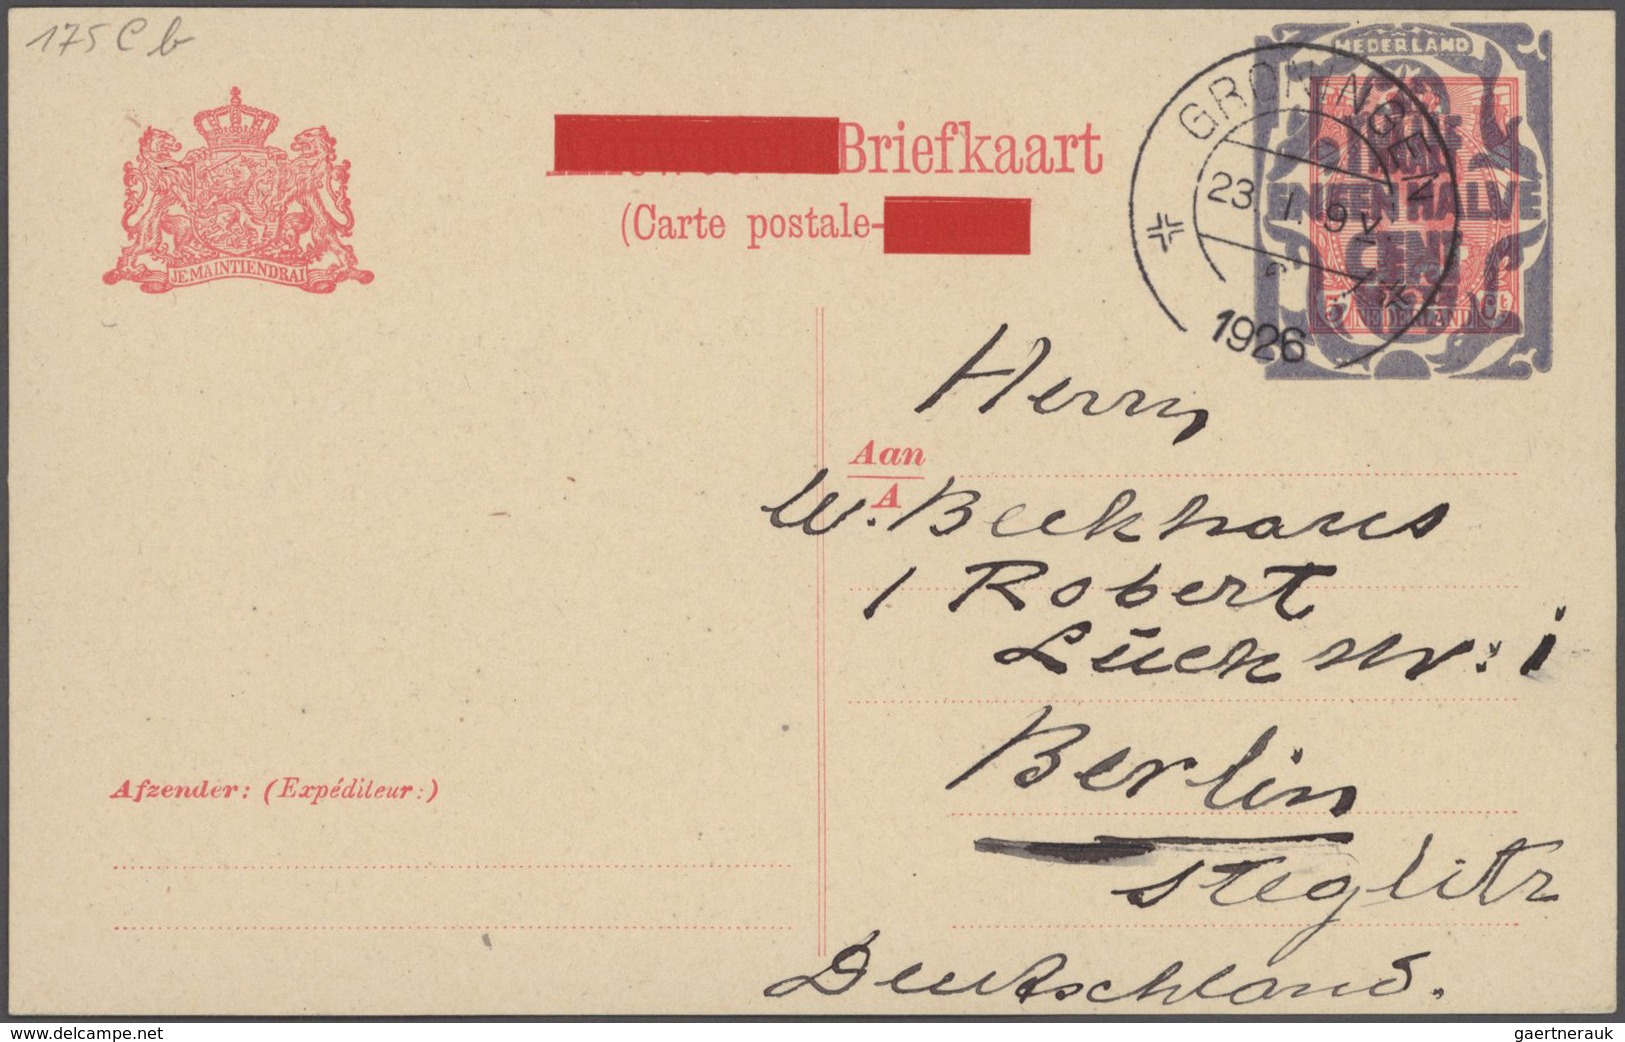 175 C b
NEDERLAND
GRONINGEN
23. I 9 V.
1926
EN EEN HALVE
CENT
5 NEDERLAND Ct
JE MAINTIENDRAI
Briefkaart
(Carte postale-
Herrn
Aan
A
W. Beekhaus
1 Robert
Lück nr: i
Berlin
Steglitz
Deutschland.
Afzender: (Expéditeur:)
www.delcampe.net
gaertnerauk